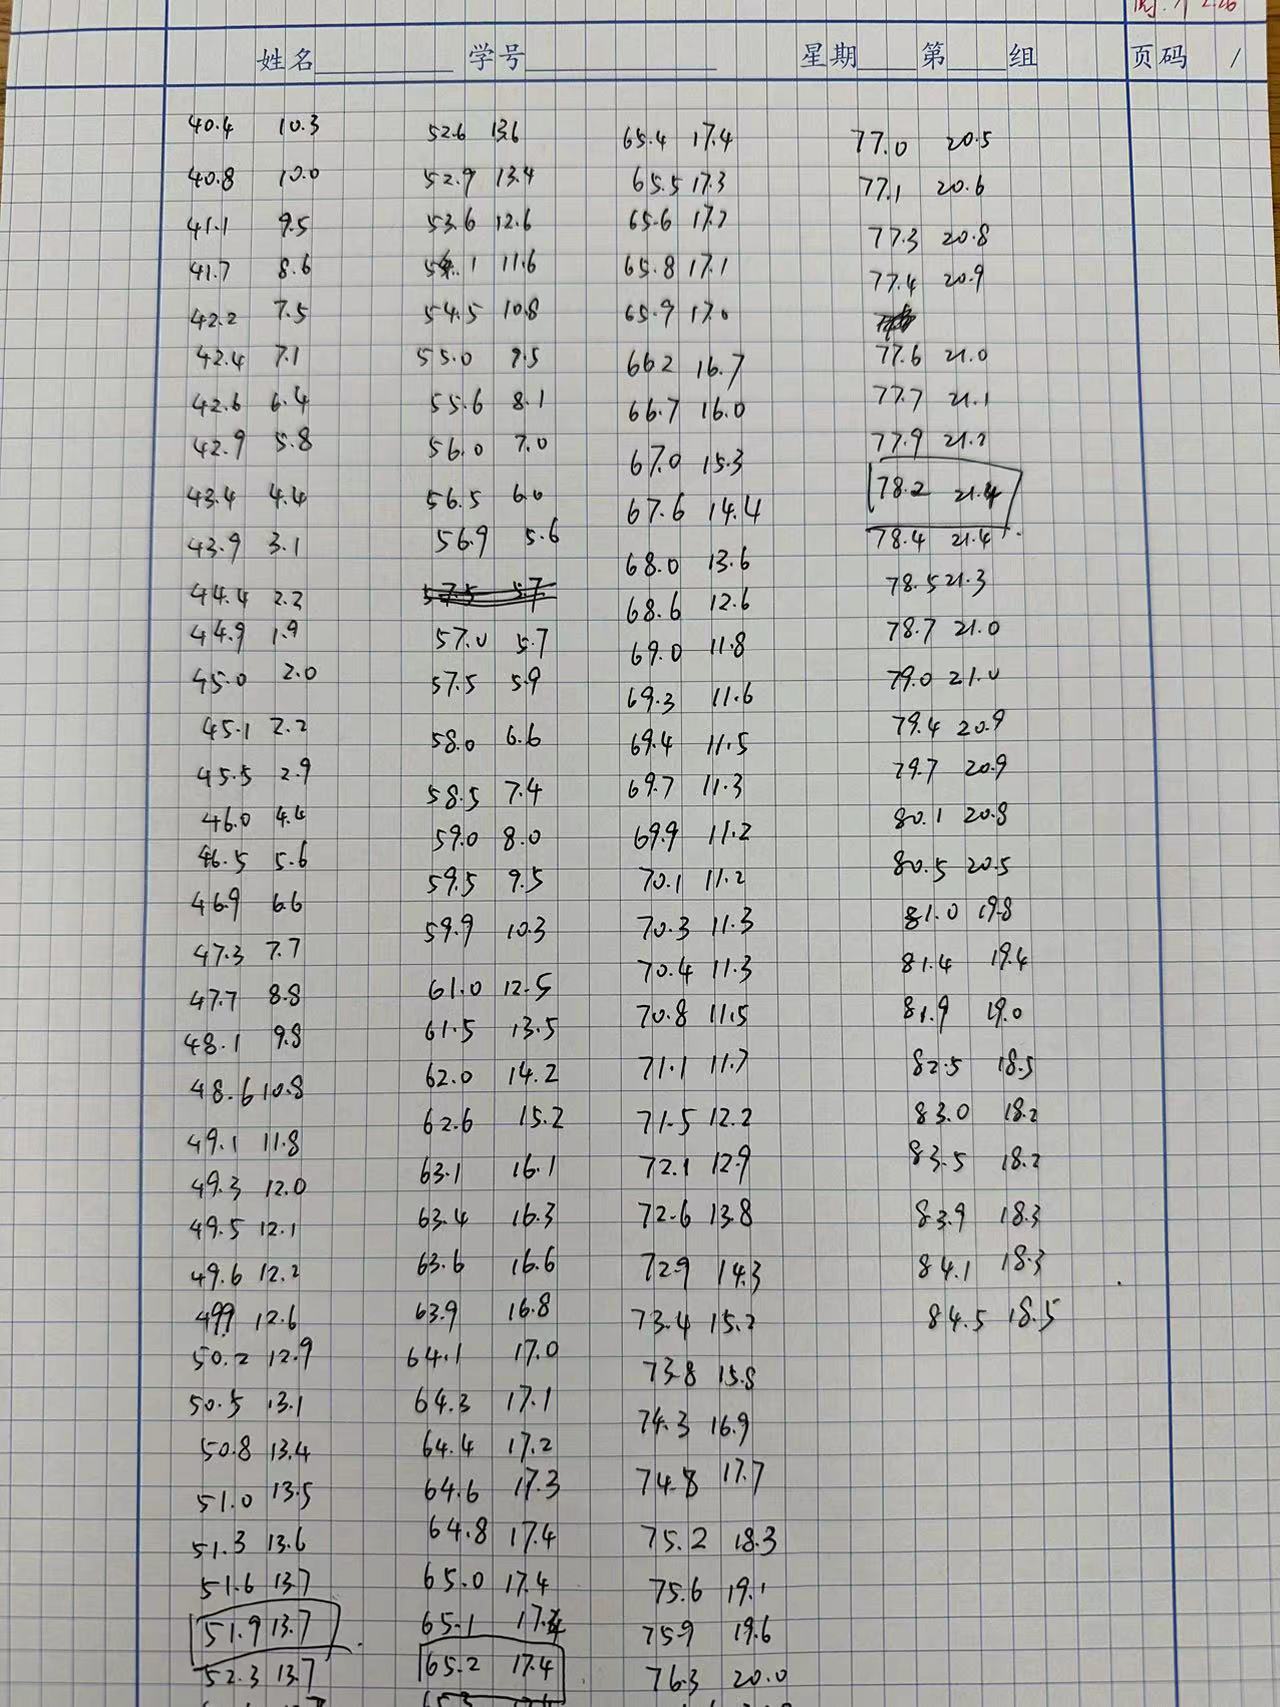 姓名 学号 星期 第 组 页码 /
40.4 10.3
40.8 10.0
41.1 9.5
41.7 8.6
42.2 7.5
42.4 7.1
42.6 6.4
42.9 5.8
43.4 4.4
43.9 3.1
44.4 2.2
44.9 1.9
45.0 2.0
45.1 2.2
45.5 2.9
46.0 4.4
46.5 5.6
46.9 6.6
47.3 7.7
47.7 8.8
48.1 9.8
48.6 10.8
49.1 11.8
49.3 12.0
49.5 12.1
49.6 12.2
49.9 12.6
50.2 12.9
50.5 13.1
50.8 13.4
51.0 13.5
51.3 13.6
51.6 13.7
51.9 13.7
52.3 13.7
52.6 13.6
52.9 13.4
53.6 12.6
54.1 11.6
54.5 10.8
55.0 9.5
55.6 8.1
56.0 7.0
56.5 6.0
56.9 5.6
57.5 5.7
57.0 5.7
57.5 5.9
58.0 6.6
58.5 7.4
59.0 8.0
59.5 9.5
59.9 10.3
61.0 12.5
61.5 13.5
62.0 14.2
62.6 15.2
63.1 16.1
63.4 16.3
63.6 16.6
63.9 16.8
64.1 17.0
64.3 17.1
64.4 17.2
64.6 17.3
64.8 17.4
65.0 17.4
65.1 17.4
65.2 17.4
65.4 17.4
65.5 17.3
65.6 17.2
65.8 17.1
65.9 17.0
66.2 16.7
66.7 16.0
67.0 15.3
67.6 14.4
68.0 13.6
68.6 12.6
69.0 11.8
69.3 11.6
69.4 11.5
69.7 11.3
69.9 11.2
70.1 11.2
70.3 11.3
70.4 11.3
70.8 11.5
71.1 11.7
71.5 12.2
72.1 12.9
72.6 13.8
72.9 14.3
73.4 15.2
73.8 15.8
74.3 16.9
74.8 17.7
75.2 18.3
75.6 19.1
75.9 19.6
76.3 20.0
77.0 20.5
77.1 20.6
77.3 20.8
77.4 20.9
77.6 21.0
77.7 21.1
77.9 21.2
78.2 21.4
78.4 21.4
78.5 21.3
78.7 21.0
79.0 21.0
79.4 20.9
79.7 20.9
80.1 20.8
80.5 20.5
81.0 19.8
81.4 19.4
81.9 19.0
82.5 18.5
83.0 18.2
83.5 18.2
83.9 18.3
84.1 18.3
84.5 18.5